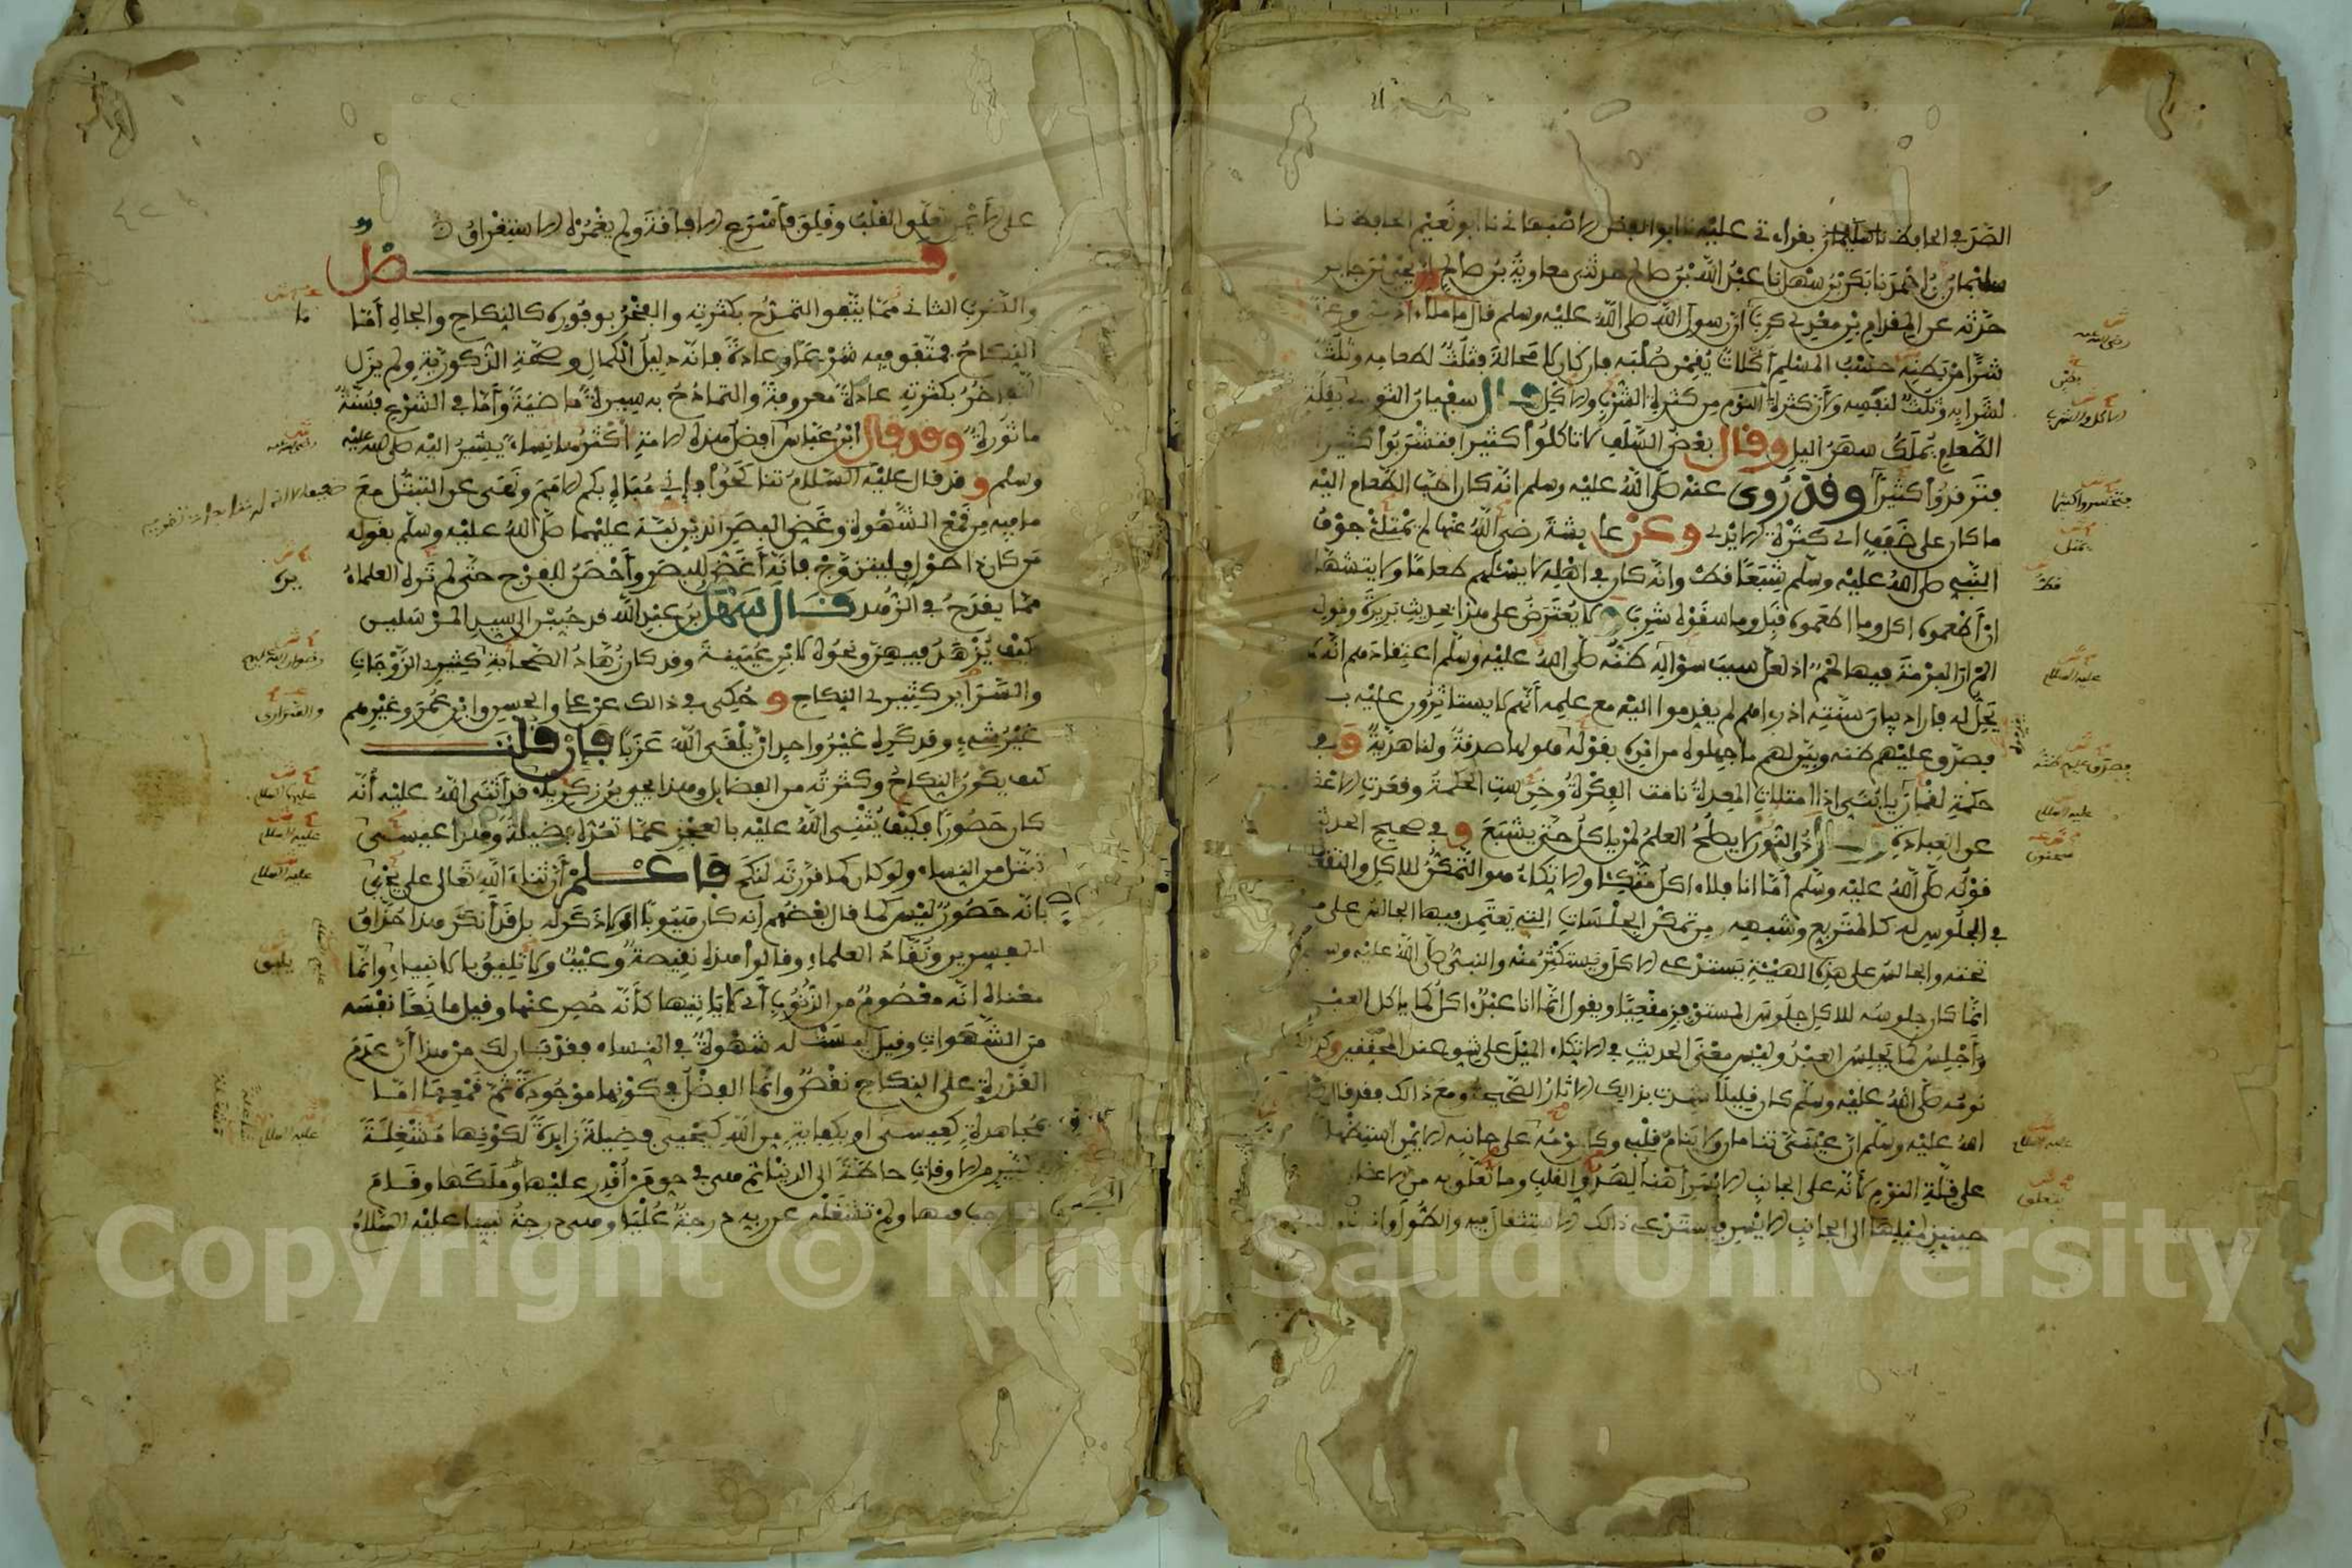 الصدفي الحافظ نا بقراءتي عليه نا ابو الفضل الاصبهاني نا ابو نعيم الحافظ نا
سليمان بن احمد نا بكر بن سهل نا عبد الله بن صالح حدثني معاوية بن صالح ان يحيى بن جابر
حدثه عن المقدام بن معدي كرب أن رسول الله صلى الله عليه وسلم قال ما ملأ ابن ادم وعاء
شرا من بطنه حسب المسلم أكلات يقمن صلبه فان كان لا محالة فثلث لطعامه وثلث
لشرابه وثلث لنفسه ولأن كثرة النوم من كثرة الشرب والاكل قال سفيان الثوري بقلة
الطعام يملك سهر اليل وقال بعض السلف لا تاكلوا كثيرا فتشربوا كثيرا
فترقدوا كثيرا وقد روى عنه صلى الله عليه وسلم انه كان احب الطعام اليه
ما كان على ضفف اي كثرة الايدي وعن عايشة رضي الله عنها لم يمتلئ جوف
النبي صلى الله عليه وسلم شبعا قط وانه كان في اهله لا يسئلهم طعاما ولا يتشهاه
ان أطعموه اكل وما اطعموه قبل وما سقوه شرب ولا يعترض على هذا بحديث بريرة وقوله
الم ار البرمة فيها لحم اذ لعل سبب سؤاله ظنه صلى الله عليه وسلم اعتقادهم انه لا
يحل له فاراد بيان سنته اذ راهم لم يقدموا اليه مع علمه أنهم لا يستاثرون عليه به
فصدق عليهم ظنه وبين لهم ما جهلوه من امره بقوله هو لها صدقة ولنا هدية وفي
حكمة لقمان يا بني اذا امتلات المعدة نامت الفكرة وخرست الحكمة وقعدت الاعضاء
عن العبادة لا يصلح العلم لمن ياكل حتى يشبع وفي صحيح الحديث
قوله صلى الله عليه وسلم أما انا فلا اكل متكئا والاتكاء هو التمكن للاكل والتقعدد
في الجلوس له كالمتربع وشبهه من تمكن الجلسات التي يعتمد فيها الجالس على ما
تحته والجالس على هذه الهيئة يستدعي الاكل ويستكثر منه والنبي صلى الله عليه وسلم
انما كان جلوسه للاكل جلوس المستوفز مقعيا ويقول انما انا عبد اكل كما ياكل العبد
وأجلس كما يجلس العبد وليس معنى الحديث في الاتكاء الميل على شق عند المحققين وكذلك
نومه صلى الله عليه وسلم كان قليلا شهدت بذالك الاثار الصحيحة ومع ذالك فقد قال صلى
الله عليه وسلم ان عيني تنامان ولا ينام قلبي وكان نومه على جانبه الايمن استظهارا
على قلة النوم لأنه على الجانب الايسر أهنا لهدو القلب وما تعلق به من الاعضاء
حينئذ لميلها الى الجانب الايسر فيستدعي ذالك الاستثقال فيه والطول واذا
رضي الله عنه
الاكل والشرب
فتخسروا كثيرا
يمتل
قط
عليه السلام
فصدق عليهم ظنه
عليه السلام
سحنون
عليه السلام
يتعلق
على الايمن تعلق القلب وقلق فأسرع الافاقة ولم يغمره الاستغراق
فصل
والضرب الثاني مما يتفق التمدح بكثرته والفخر بوفوره كالنكاح والجاه أما
النكاح فمتفق فيه شرعا وعادة فانه دليل الكمال وصحة الذكورية ولم يزل
التفاخر بكثرته عادة معروفة والتمادح به سيرة ماضية وأما في الشرع فسنة
ماثورة وقد قال ابن عباس افضل هذه الامة أكثرها نساء يشير اليه صلى الله عليه
وسلم وقد قال عليه السلام تناكحوا فإني مباه بكم الامم ونهى عن التبتل مع
ما فيه من قمع الشهوة وغض البصر الذين نبه عليهما صلى الله عليه وسلم بقوله
من كان ذا طول فليتزوج فانه أغض للبصر وأحصن للفرج حتى لم تره العلماء
مما يقدح في الزهد قال سهل بن عبد الله قد حببن الى سيد المرسلين
فكيف يزهد فيهن ونحوه لابن عيينة وقد كان زهاد الصحابة كثيري الزوجات
والسراري كثيري النكاح وحكي في ذالك عن علي والحسن وابن عمر وغيرهم
غير شيء وقد كره غير واحد ان يلقى الله عزبا فان قلت
كيف يكون النكاح وكثرته من الفضايل وهذا يحيى بن زكرياء قد أثنى الله عليه أنه
كان حصورا فكيف يثني الله عليه بالعجز عما تعده فضيلة وهذا عيسى
تبتل من النساء ولو كان كما قررته لنكح فاعلم أن ثناء الله تعالى على يحيى
بانه حصور ليس كما قال بعضهم انه كان هيوبا او لا ذكر له بل قد أنكر هذا حذاق
المفسرين ونقاد العلماء وقالوا هذه نقيصة وعيب ولا تليق بالانبياء وانما
معناه انه معصوم من الذنوب أي لا ياتيها كأنه حصر عنها وقيل مانعا نفسه
من الشهوات وقيل ليست له شهوة في النساء فقد بان لك من هذا أن عدم
القدرة على النكاح نقص وانما الفضل في كونها موجودة ثم قمعها اما
بمجاهدة كعيسى او بكفاية من الله كيحيى فضيلة زايدة لكونها مشغلة
في كثير من الاوقات حاطة الى الدنيا ثم هي في حق من أقدر عليها وملكها وقام
بالواجب فيها ولم تشغله عن ربه درجة عليا وهي درجة نبينا عليه السلام
ما
يره
والسراري
عليهما السلام
عليه السلام
عليه السلام
يليق
عليه السلام